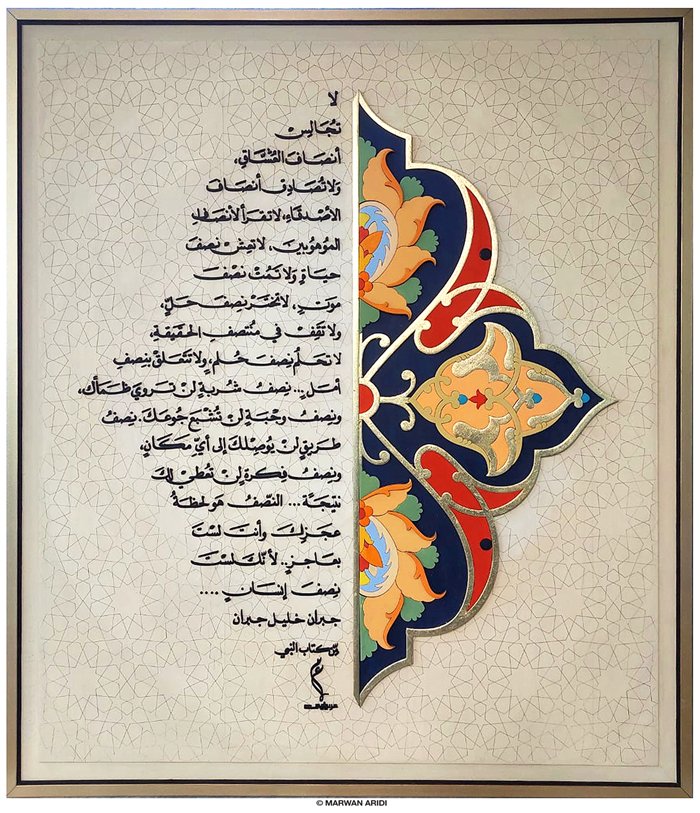 لا
تُجَالِسْ
أنصَافَ العُشَّاقِ،
وَلا تُصَادِق أنصَافَ
الأصْدقَاءِ، لا تقرَأ لأنصَافِ
المَوهُوبينَ، لا تعِشْ نِصفَ
حيَاةٍ وَلا تَمُتْ نصْفَ
مَوتٍ، لا تختَرْ نِصفَ حَلٍّ،
ولا تقِفْ في مُنتَصفِ الحَقيقَةِ،
لا تحلَم نِصفَ حُلمٍ، وَلا تتَعَلقْ بنِصفِ
أملٍ... نِصفُ شُربَةٍ لنْ تروي ظَمأكَ،
ونِصفُ وجْبَةٍ لنْ تُشْبِعَ جُوعَكَ. نِصفُ
طَريقٍ لنْ يُوصِلكَ إلى أيِّ مكَانٍ،
ونِصفُ فِكرَةٍ لنْ تُعطي لكَ
نتيجَةً... النّصْفُ هوَ لحظَةُ
عجَزِكَ وأنتَ لسْتَ
بعَاجزٍ.. لأنّكَ لسْتَ
نِصفَ إنسَانٍ ....
جبران خليل جبران
من كتاب النبي
© MARWAN ARIDI